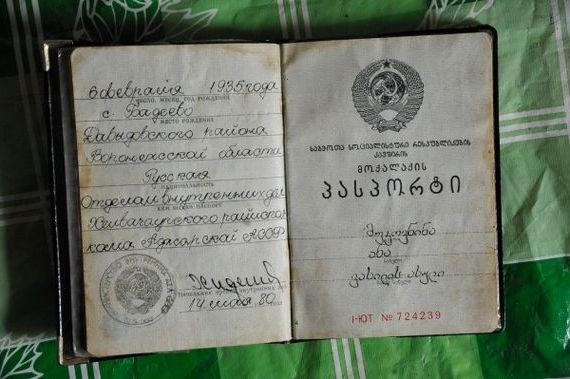 6 февраля 1935 года
число, месяц, год рождения
с. Бадеево
место рождения
Давыдовского района
Воронежской области
Русская
национальность
Отделом внутренних дел
кем выдан паспорт
Хелвачаурского райиспол-
кома Аджарской АССР
14 мая 80 года
საბჭოთა სოციალისტური რესპუბლიკების
კავშირის
მოქალაქის
პასპორტი
ანა
ვასილის ასული
I-ЮТ № 724239